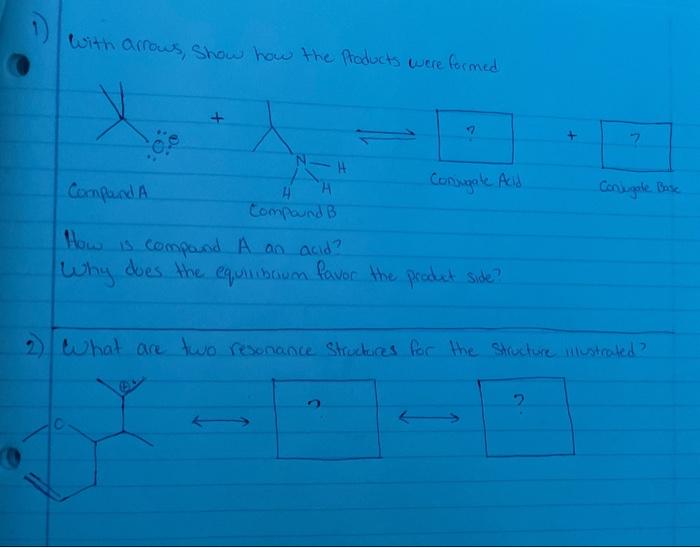 1) With arrows, Show how the Products were formed
+ ? + ?
O
N H
H H
Compound A
Compound B
Conjugate Acid
Conjugate Base
How is compound A an acid?
Why does the equilibrium favor the product side?
2) What are two resonance Structures for the Structure illustrated?
+
O
? ?